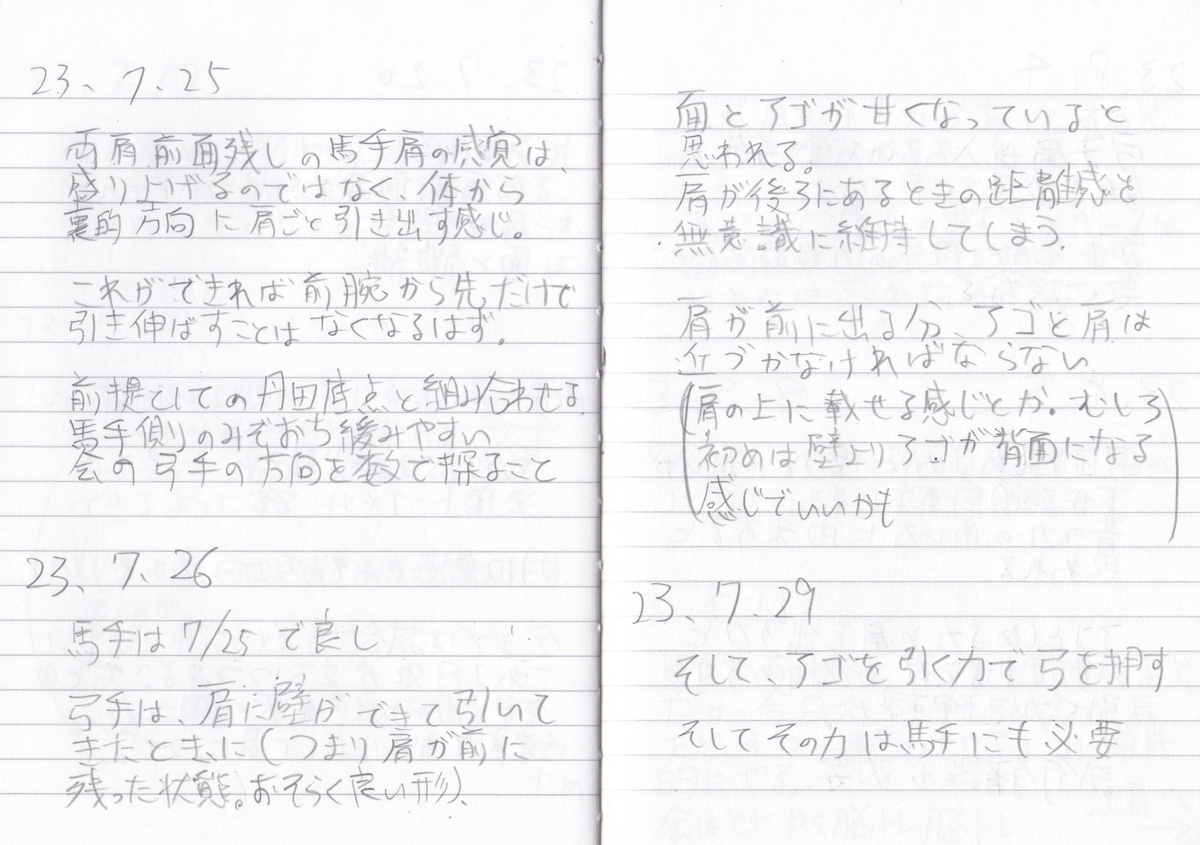 23、7、25
両肩前面残しの馬手肩の感覚は、
盛り上げるのではなく、体から
裏的方向に肩ごと引き出す感じ。
これができれば前腕から先だけで
引き伸ばすことはなくなるはず。
前提としての丹田底点と組み合わせる
馬手側りのみぞおち緩みやすい
会の弓手の方向を数で探ること
23、7、26
馬手は7/25で良し
弓手は、肩に壁ができて引いて
きたときに(つまり肩が前に
残った状態。おそらく良い形)、
面とアゴが甘くなっていると
思われる。
肩が後ろにあるときの距離感を
無意識に維持してしまう。
肩が前に出る分、アゴと肩は
近づかなければならない
(肩の上に載せる感じとか。むしろ
初めは壁よりアゴが背面になる
感じでいいかも)
23、7、29
そして、アゴを引く力で弓を押す
そしてその力は馬手にも必要